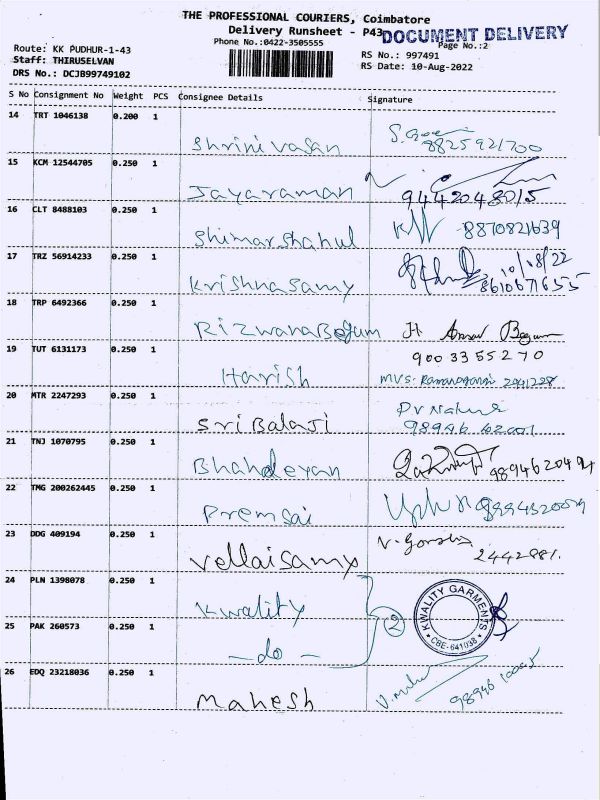 THE PROFESSIONAL COURIERS, Coimbatore
Delivery Runsheet - P43
DOCUMENT DELIVERY
Phone No.:0422-3505555
Page No.:2
Route: KK PUDHUR-1-43
RS No.: 997491
Staff: THIRUSELVAN
RS Date: 10-Aug-2022
DRS No.: DCJB99749102
S No Consignment No Weight PCS Consignee Details Signature
14 TRT 1046138 0.200 1
Shrinivasan 8825921700
15 KCM 12544705 0.250 1
Jayaraman 9442048015
16 CLT 8488103 0.250 1
Shimarshahul 8870821639
17 TRZ 56914233 0.250 1
10/8/22
Krishnasamy 8610671655
18 TRP 6492366 0.250 1
RizwanaBegum Begum
19 TUT 6131173 0.250 1
9003355270
Harish
20 MTR 2247293 0.250 1
Sri Balaji
21 TNJ 1070795 0.250 1
22 TMG 200262445 0.250 1
Premsai
23 DDG 409194 0.250 1
Vellaisamy 2442881.
24 PLN 1398078 0.250 1
Kwality
2
KWALITY GARMENTS
CBE-641038
25 PAK 260573 0.250 1
-do-
26 EDQ 23218036 0.250 1
Mahesh